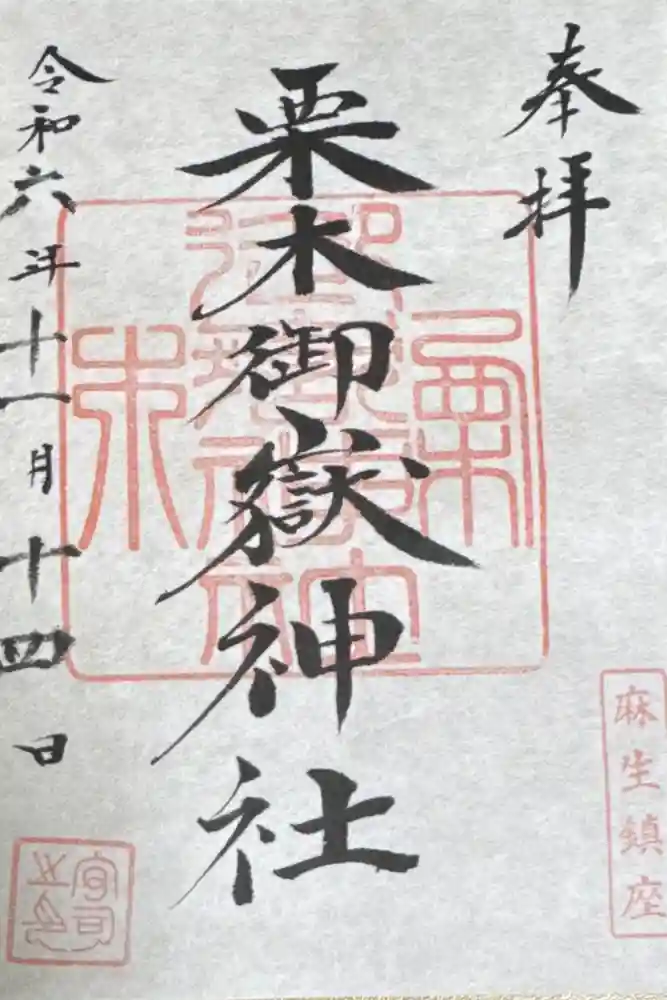 奉拝
栗木御嶽神社
令和六年十一月十四日
麻生鎮座
宮司之印